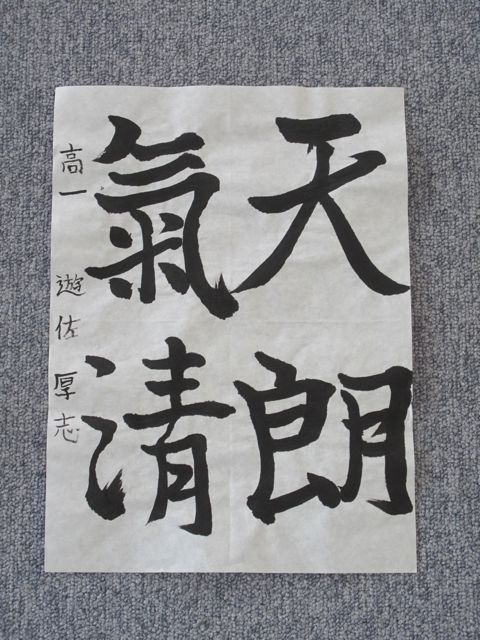 天朗
氣清
高一 遊佐厚志